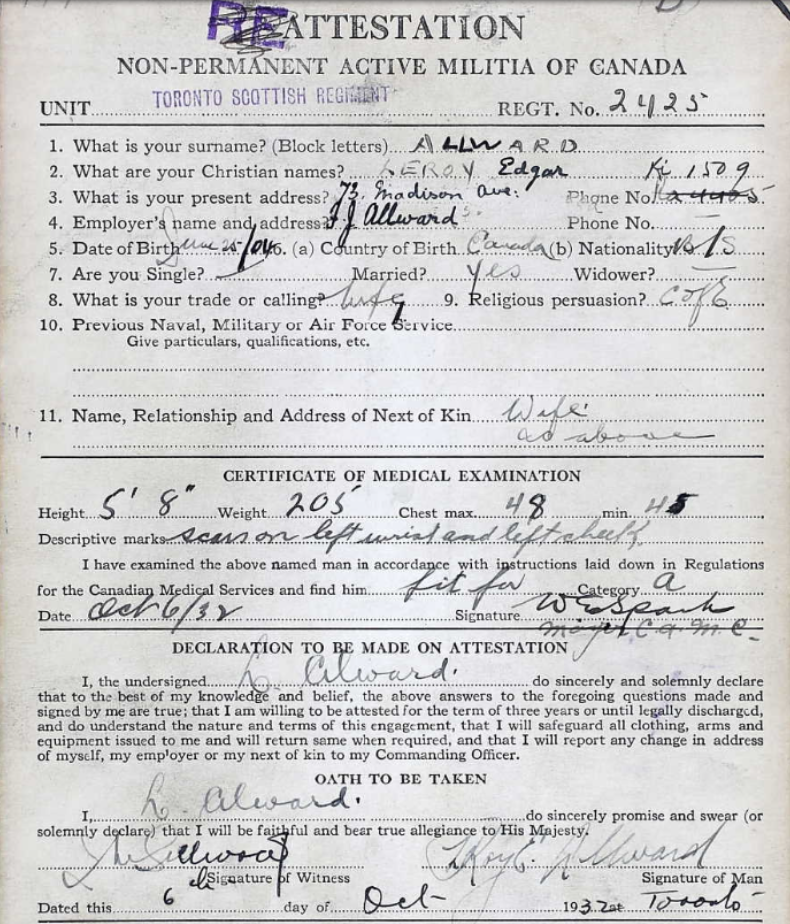 RE ATTESTATION
NON-PERMANENT ACTIVE MILITIA OF CANADA
UNIT TORONTO SCOTTISH REGIMENT REGT. No. 2425
1. What is your surname? (Block letters) ALLWARD
2. What are your Christian names? LEROY Edgar Ki 1509
3. What is your present address? 73. Madison Ave. Phone No.
4. Employer's name and address? J Allward Phone No. —
5. Date of Birth June 25/04 6. (a) Country of Birth Canada (b) Nationality B/S
7. Are you Single? — Married? Yes Widower? —
8. What is your trade or calling? 9. Religious persuasion? C of E
10. Previous Naval, Military or Air Force Service
Give particulars, qualifications, etc.
11. Name, Relationship and Address of Next of Kin Wife
as above
CERTIFICATE OF MEDICAL EXAMINATION
Height 5' 8" Weight 205 Chest max. 48 min. 45
Descriptive marks scars on left wrist and left cheek
I have examined the above named man in accordance with instructions laid down in Regulations
for the Canadian Medical Services and find him fit for Category A
Date Oct 6/32 Signature
Major C.A.M.C.
DECLARATION TO BE MADE ON ATTESTATION
I, the undersigned L. Allward. do sincerely and solemnly declare
that to the best of my knowledge and belief, the above answers to the foregoing questions made and
signed by me are true; that I am willing to be attested for the term of three years or until legally discharged,
and do understand the nature and terms of this engagement, that I will safeguard all clothing, arms and
equipment issued to me and will return same when required, and that I will report any change in address
of myself, my employer or my next of kin to my Commanding Officer.
OATH TO BE TAKEN
I, L. Allward. do sincerely promise and swear (or
solemnly declare) that I will be faithful and bear true allegiance to His Majesty.
LRoy E Allward
Signature of Witness Signature of Man
Dated this 6th day of Oct 1932 at Toronto